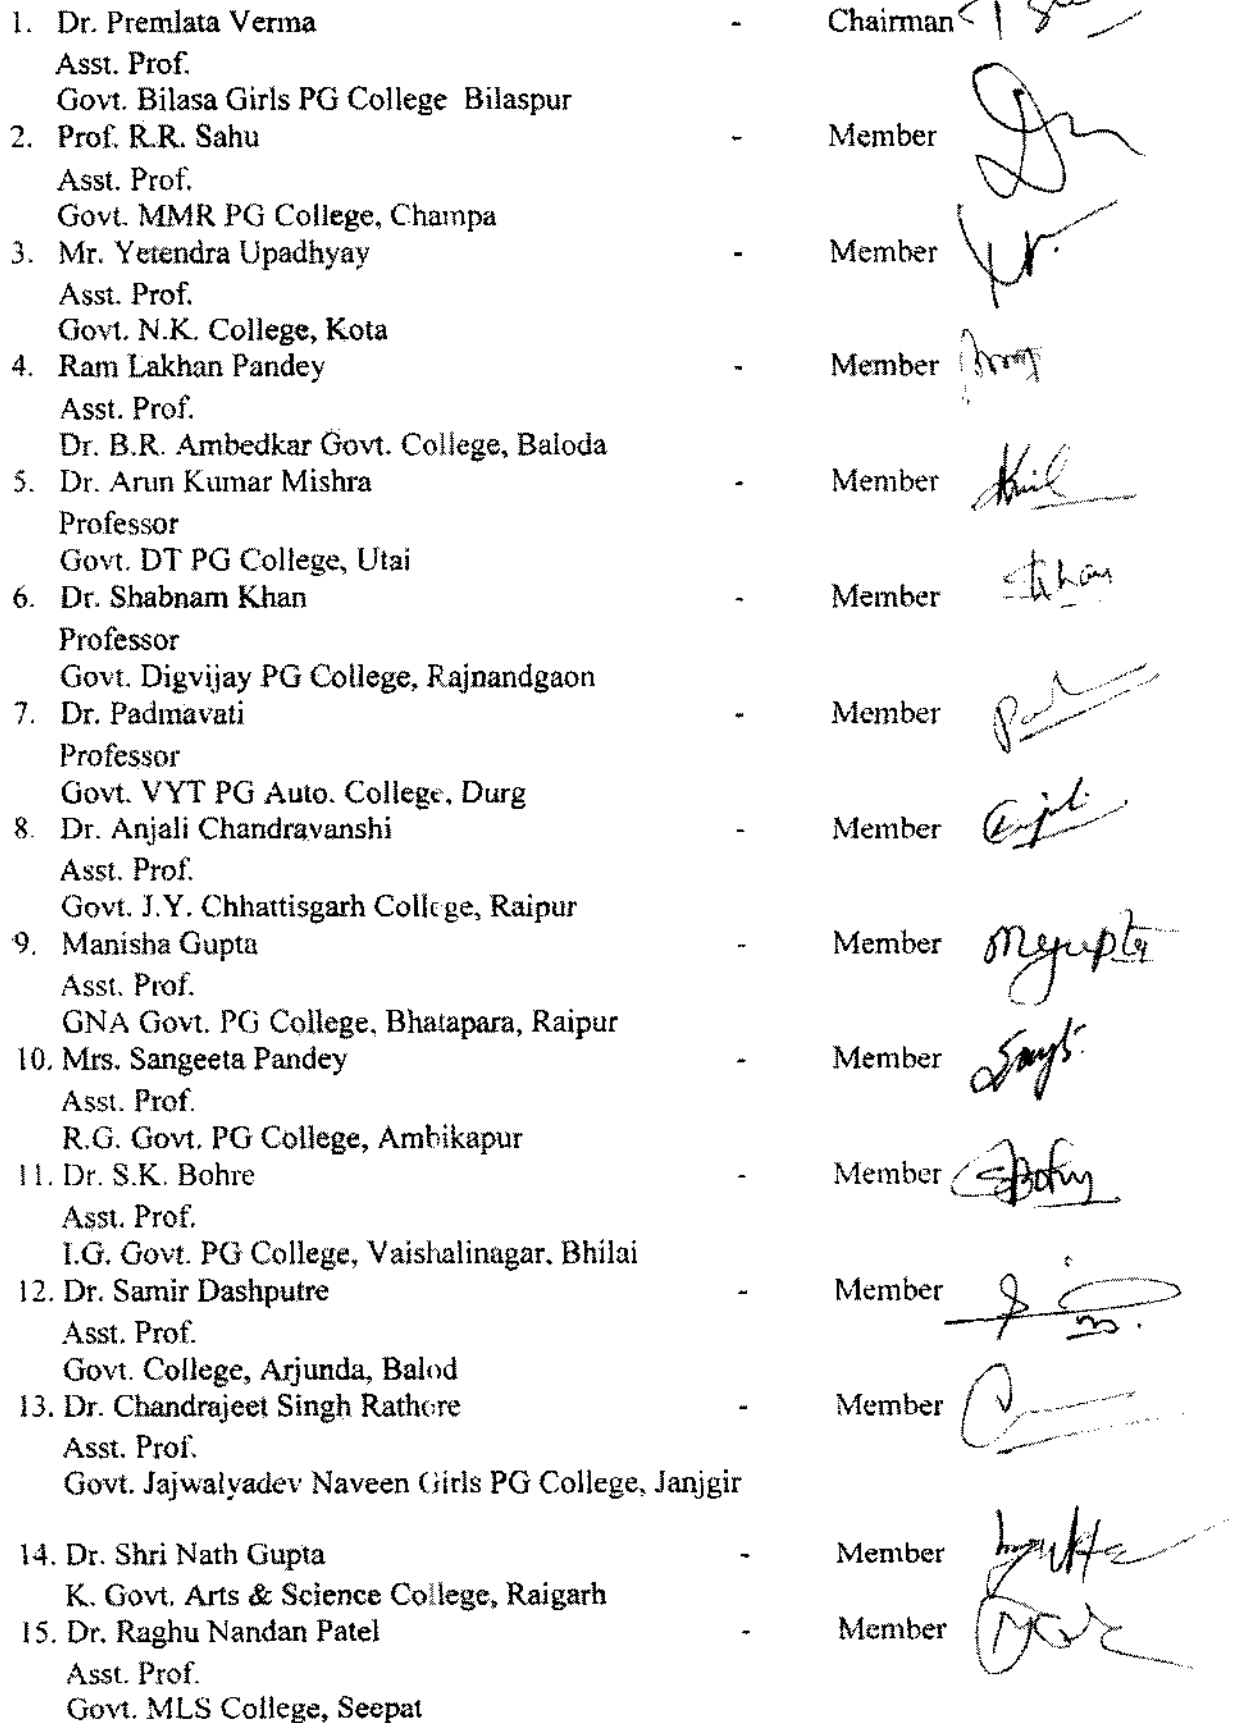 1. Dr. Premlata Verma - Chairman
Asst. Prof.
Govt. Bilasa Girls PG College Bilaspur
2. Prof. R.R. Sahu - Member
Asst. Prof.
Govt. MMR PG College, Champa
3. Mr. Yetendra Upadhyay - Member
Asst. Prof.
Govt. N.K. College, Kota
4. Ram Lakhan Pandey - Member
Asst. Prof.
Dr. B.R. Ambedkar Govt. College, Baloda
5. Dr. Arun Kumar Mishra - Member
Professor
Govt. DT PG College, Utai
6. Dr. Shabnam Khan - Member Khan
Professor
Govt. Digvijay PG College, Rajnandgaon
7. Dr. Padmavati - Member
Professor
Govt. VYT PG Auto. College, Durg
8. Dr. Anjali Chandravanshi - Member Anjali
Asst. Prof.
Govt. J.Y. Chhattisgarh College, Raipur
9. Manisha Gupta - Member Mgupta
Asst. Prof.
GNA Govt. PG College, Bhatapara, Raipur
10. Mrs. Sangeeta Pandey - Member
Asst. Prof.
R.G. Govt. PG College, Ambikapur
11. Dr. S.K. Bohre - Member
Asst. Prof.
I.G. Govt. PG College, Vaishalinagar. Bhilai
12. Dr. Samir Dashputre - Member
Asst. Prof.
Govt. College, Arjunda, Balod
13. Dr. Chandrajeet Singh Rathore - Member
Asst. Prof.
Govt. Jajwalyadev Naveen Girls PG College, Janjgir
14. Dr. Shri Nath Gupta - Member
K. Govt. Arts & Science College, Raigarh
15. Dr. Raghu Nandan Patel - Member
Asst. Prof.
Govt. MLS College, Seepat